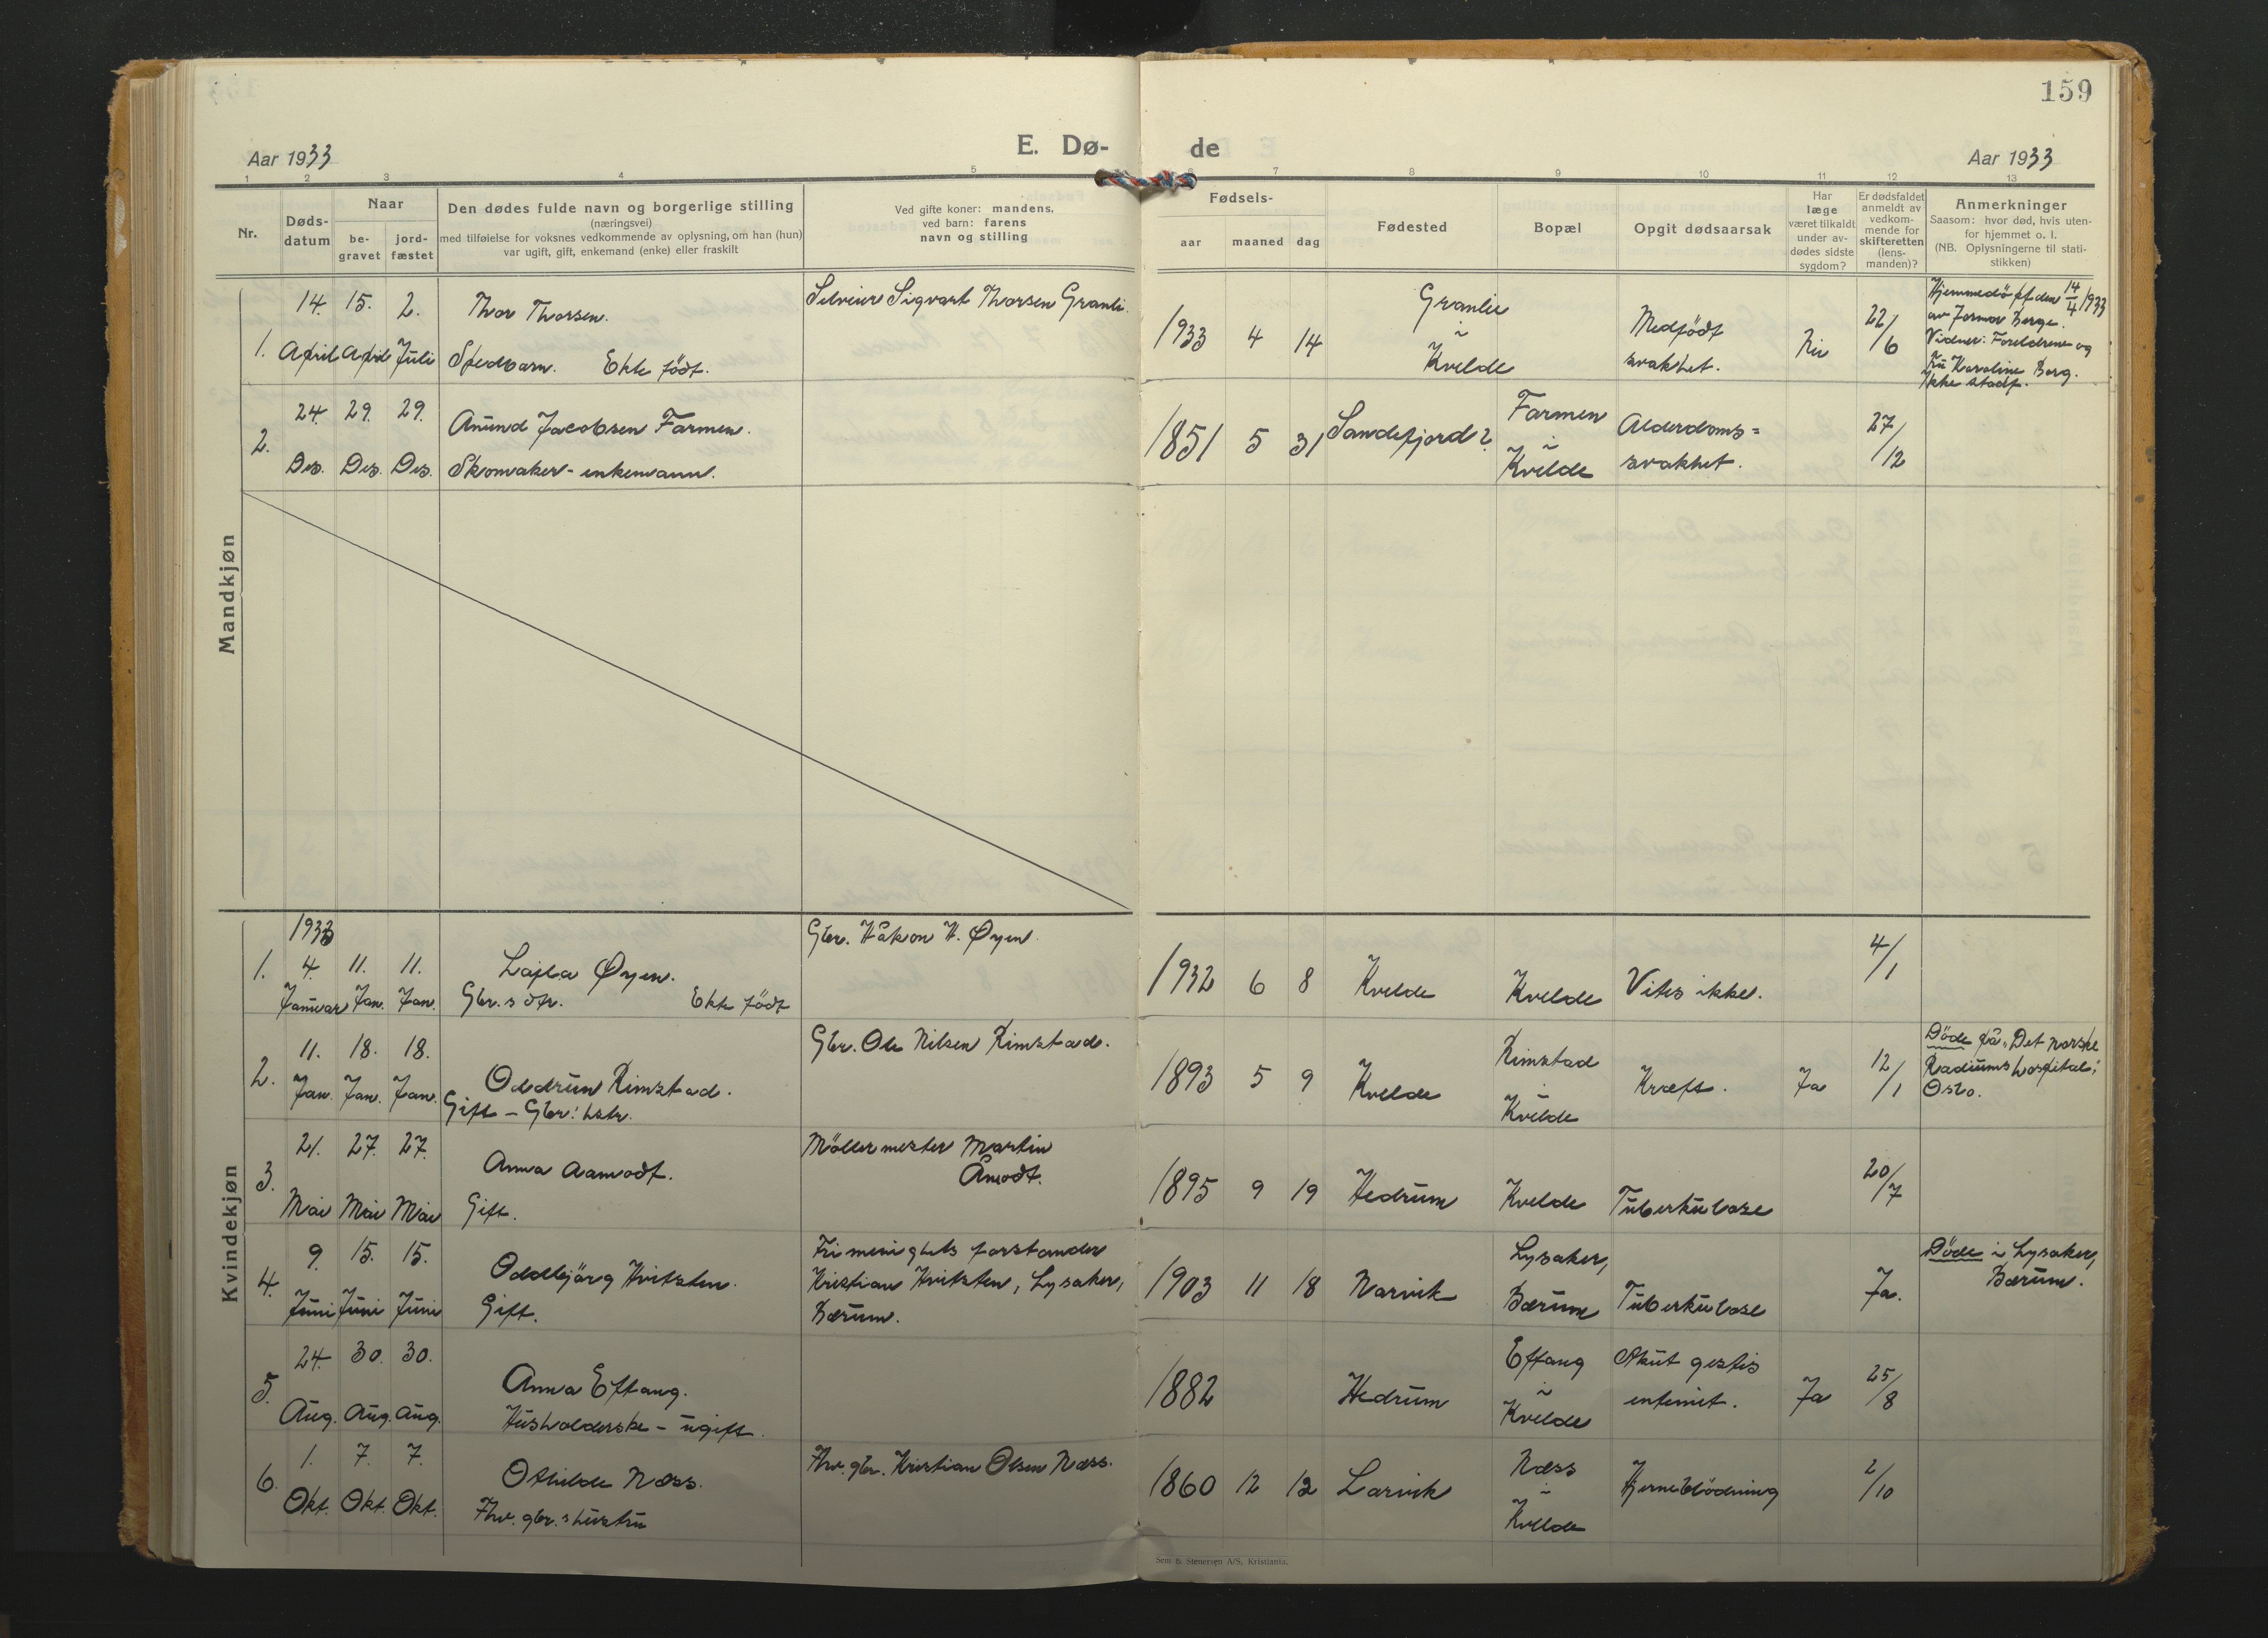 159
Aar 1933
E. Dø-
de
Aar 1933
1 2 3 4 5 7 8 9 10 11 12 13
Nr.
Døds-
datum
Naar
be-
gravet
jord-
fæstet
Den dødes fulde navn og borgerlige stilling
(næringsvei)
med tilføielse for voksnes vedkommende av oplysning, om han (hun)
var ugift, gift, enkemand (enke) eller fraskilt
Ved gifte koner: mandens,
ved barn: farens
navn og stilling
Fødsels-
aar maaned dag
Fødested
Bopæl
Opgit dødsaarsak
Har
læge
været tilkaldt
under av-
dødes sidste
sygdom?
Er dødsfaldet
anmeldt av
vedkom-
mende for
skifteretten
(lens-
manden)?
Anmerkninger
Saasom: hvor død, hvis uten-
for hjemmet o. l.
(NB. Oplysningerne til stati-
stikken)
Mandkjøn
1.
14. April
15. April
2. Juli
Thor Thorsen.
Spedbarn. Ekte födt.
Sigvart Thorsen Granli.
1933 4 14
Granlie
i
Kvelde
Medfödt
svakhet.
Nei
22/6
Hjemmedöpt den 14/4 1933
av Jormor Berge.
Vidner: Foreldrene og
fru Karoline Berg.
Ikke stadf.
2.
24. Des.
29. Des.
29. Des.
Anund Jacobsen Farmen.
Skomaker - enkemann.
1851 5 31
Sandefjord?
Farmen
i
Kvelde
Alderdoms=
svakhet.
27/12
Kvindekjøn
1933
1.
4. Januar
11. Jan.
11. Jan.
Lajla Øyen.
Gbr.s dtr. Ekte födt
Gbr. Håkon H. Øyen.
1932 6 8
Kvelde
Kvelde
Vites ikke.
4/1
2.
11. Jan.
18. Jan.
18. Jan.
Oddrun Rimstad.
Gift - Gbr. hstr.
Gbr. Ole Nilsen Rimstad.
1893 5 9
Kvelde
Rimstad
i
Kvelde
Kræft.
Ja
12/1
Döde på "Det norske
Radiumshospital",
Oslo.
3.
21. Mai
27. Mai
27. Mai
Anna Aamodt.
Gift.
Möllermester Martin
Åmodt.
1895 9 19
Hedrum
Kvelde
Tuberkulose
20/7
4.
9. Juni
15. Juni
15. Juni
Oddbjörg Hvitsten.
Gift.
Frimenighets forstander
Kristian Hvitsten, Lysaker,
Bærum.
1903 11 18
Narvik
Lysaker,
Bærum
Tuberkulose
Ja.
Döde i Lysaker,
Bærum.
5.
24. Aug.
30. Aug.
30. Aug.
Anna Eftang.
Husholderske - ugift.
1882
Hedrum
Eftang
i
Kvelde
Akut
Ja
25/8
6.
1. Okt.
7. Okt.
7. Okt.
Othilde Næss.
Fhv. gbr.s hustru
Fhv. gbr. Kristian Olsen Næss.
1860 12 12
Larvik
Næss
i
Kvelde
Hjerneblödning
2/10
Sem & Stenersen A/S, Kristiania.